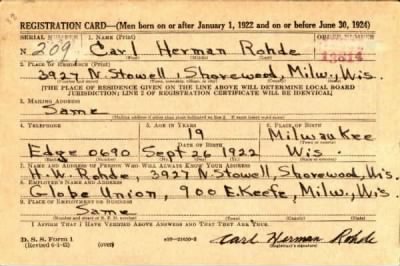 REGISTRATION CARD—(Men born on or after January 1, 1922 and on or before June 30, 1924)
SERIAL NUMBER 1. NAME (Print) ORDER NUMBER
N 209 Carl Herman Rohde 13814
(First) (Middle) (Last)
2. PLACE OF RESIDENCE (Print)
3927 N. Stowell, Shorewood, Milw., Wis.
(Number and street) (Town) (County) (State)
[THE PLACE OF RESIDENCE GIVEN ON THE LINE ABOVE WILL DETERMINE LOCAL BOARD
JURISDICTION; LINE 2 OF REGISTRATION CERTIFICATE WILL BE IDENTICAL]
3. MAILING ADDRESS
Same
[Mailing address if other than place indicated on line 2. If same insert word same]
4. TELEPHONE 5. AGE IN YEARS 6. PLACE OF BIRTH
19 Milwaukee
DATE OF BIRTH (Town or county)
Edge 0690 Sept 26 1922 Wis.
(Exchange) (Number) (Mo.) (Day) (Yr.) (State or country)
7. NAME AND ADDRESS OF PERSON WHO WILL ALWAYS KNOW YOUR ADDRESS
H. W. Rohde, 3927 N. Stowell, Shorewood, Wis.
8. EMPLOYER'S NAME AND ADDRESS
Globe Union, 900 E. Keefe, Milw., Wis.
9. PLACE OF EMPLOYMENT OR BUSINESS
Same
(Number and street or R. F. D. number) (Town) (County) (State)
I AFFIRM THAT I HAVE VERIFIED ABOVE ANSWERS AND THAT THEY ARE TRUE.
D. S. S. Form 1
(Revised 6-1-42) (over) Carl Herman Rohde
(Registrant's signature)